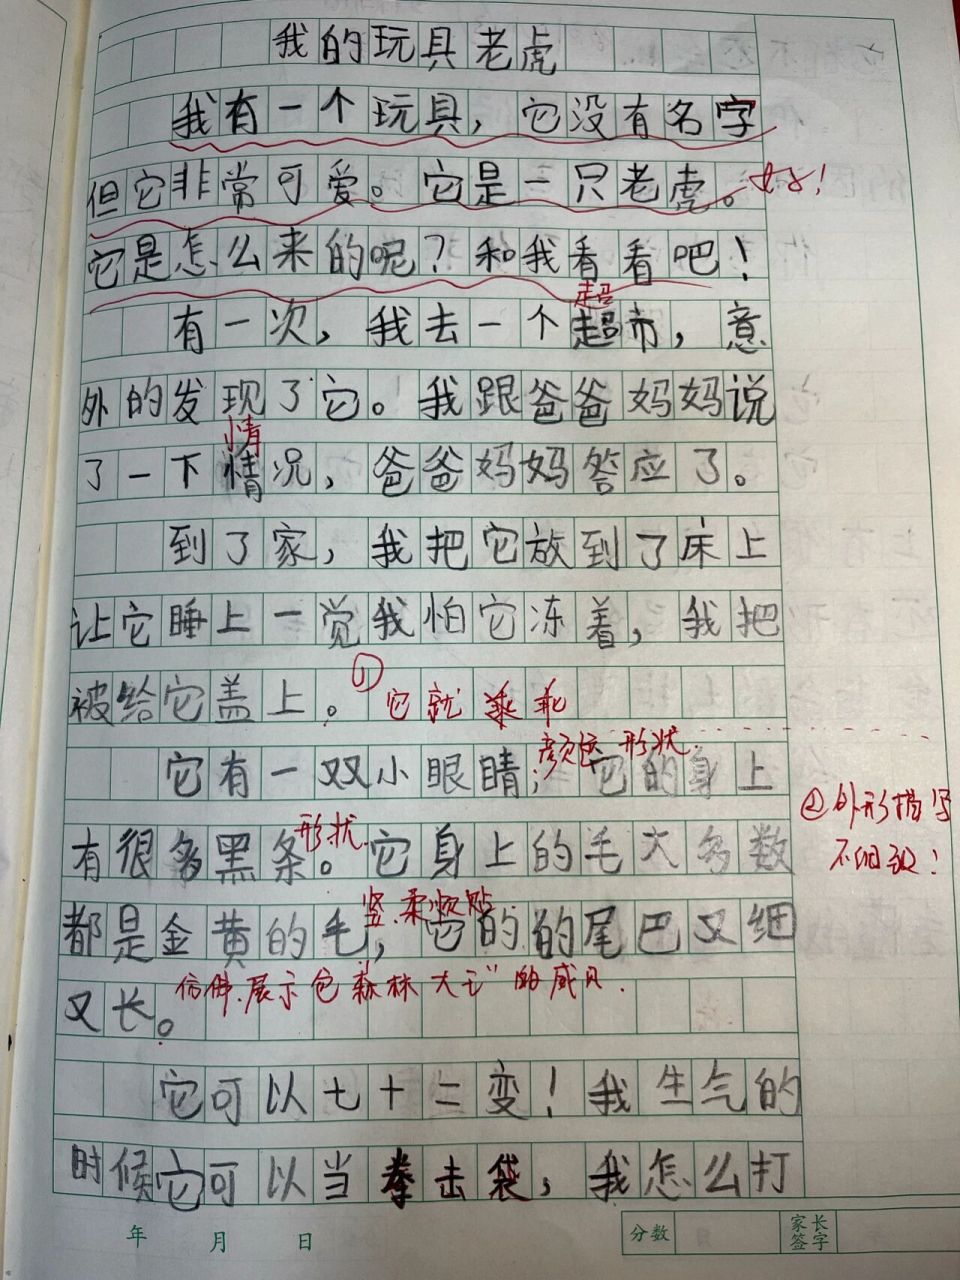 我的玩具老虎
我有一个玩具，它没有名字
但它非常可爱。它是一只老虎。好！
它是怎么来的呢？和我看看吧！
超
有一次，我去一个超市，意
外的发现了它。我跟爸爸妈妈说
情
了一下情况，爸爸妈妈答应了。
到了家，我把它放到了床上
让它睡上一觉我怕它冻着，我把
被给它盖上。①它就乖乖
颜色 形状.
它有一双小眼睛，它的身上
②外形描写
形状.
有很多黑条。它身上的毛大多数
不细致！
竖.柔软贴
都是金黄的毛，它的的尾巴又细
仿佛.展示它"森林大王"的威
又长。
它可以七十二变！我生气的
时候它可以当拳击袋，我怎么打
年 月 日
分数
家长签字